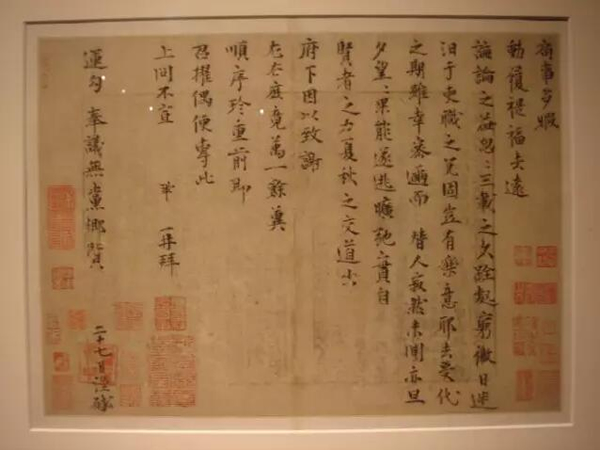 局事多暇
動履禔福去遠
誨論之益忽忽三載之久跧處窮徼日迷
汩于吏職之冗固豈有樂意耶去受代
之期雖幸密邇而替人寂然未聞亦旦
夕望望果能遂逃曠弛實自
賢者之力夏秋之交道出
府下因以致謝
左右庶竟萬一餘冀
順序珍重前即
召擢偶便專此
上問不宣 鞏 再拜
運勾奉議無黨鄉賢
二十七日謹啓